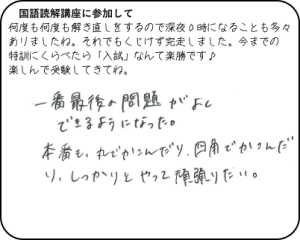 国語読解講座に参加して
何度も何度も解き直しをするので深夜0時になることも多々
ありましたね。それでもくじけず完走しました。今までの
特訓にくらべたら「入試」なんて楽勝です♪
楽しんで受験してきてね。
一番最後の問題がよく
できるようになった。
本番も、丸でかこんだり、四角でかこんだ
り、しっかりとやって頑張りたい。